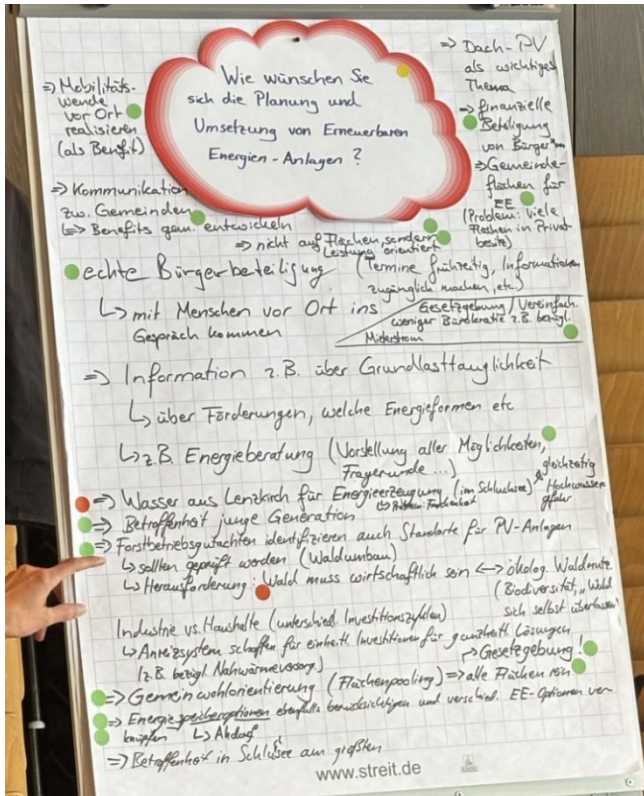 Wie wünschen Sie
sich die Planung und
Umsetzung von Erneuerbaren
Energien-Anlagen?
=> Mobilitäts-
wende
vor Ort
realisieren
(als Benefit)
=> Dach-PV
als wichtiges
Thema
=> finanzielle
Beteiligung
von Bürger*inn
=> Gemeinde-
flächen für
EE
(Problem: viele
Flächen in Privat-
besitz)
=> Kommunikation
zw. Gemeinden
=> Benefits gem. entwickeln
=> nicht auf Flächen, sondern
Leistung orientiert
echte Bürgerbeteiligung (Termine frühzeitig, Informationen
zugänglich machen, etc.)
↳ mit Menschen vor Ort ins
Gespräch kommen
Gesetzgebung / Vereinfach.
weniger Bürokratie z.B. bezügl.
Mieterstrom
=> Information z.B. über Grundlasttauglichkeit
↳ über Förderungen, welche Energieformen etc
↳ z.B. Energieberatung (Vorstellung aller Möglichkeiten,
Fragerunde ...)
=> Wasser aus Lenzkirch für Energieerzeugung (im Schluchsee)
↳ Problem: Trockenheit
gleichzeitig
Hochwasser
gefahr
=> Betroffenheit junge Generation
=> Forstbetriebsgutachten identifizieren auch Standorte für PV-Anlagen
↳ sollten geprüft werden (Waldumbau)
↳ Herausforderung: Wald muss wirtschaftlich sein <-> ökolog. Waldnutz.
(Biodiversität, "Wald
sich selbst überlassen")
Industrie vs. Haushalte (unterschiedl. Investitionszyklen)
↳ Anreizsystem schaffen für einheitl. Investitionen für ganzheitl. Lösungen
(z.B. bezügl. Nahwärmeversorg.)
→ Gesetzgebung!
=> Gemeinwohlorientierung (Flächenpooling) => alle Flächen rein
=> Energiespeicheroptionen ebenfalls berücksichtigen und verschied. EE-Optionen ver-
knüpfen ↳ Ahdorf
=> Betroffenheit in Schluchsee am größten
www.streit.de